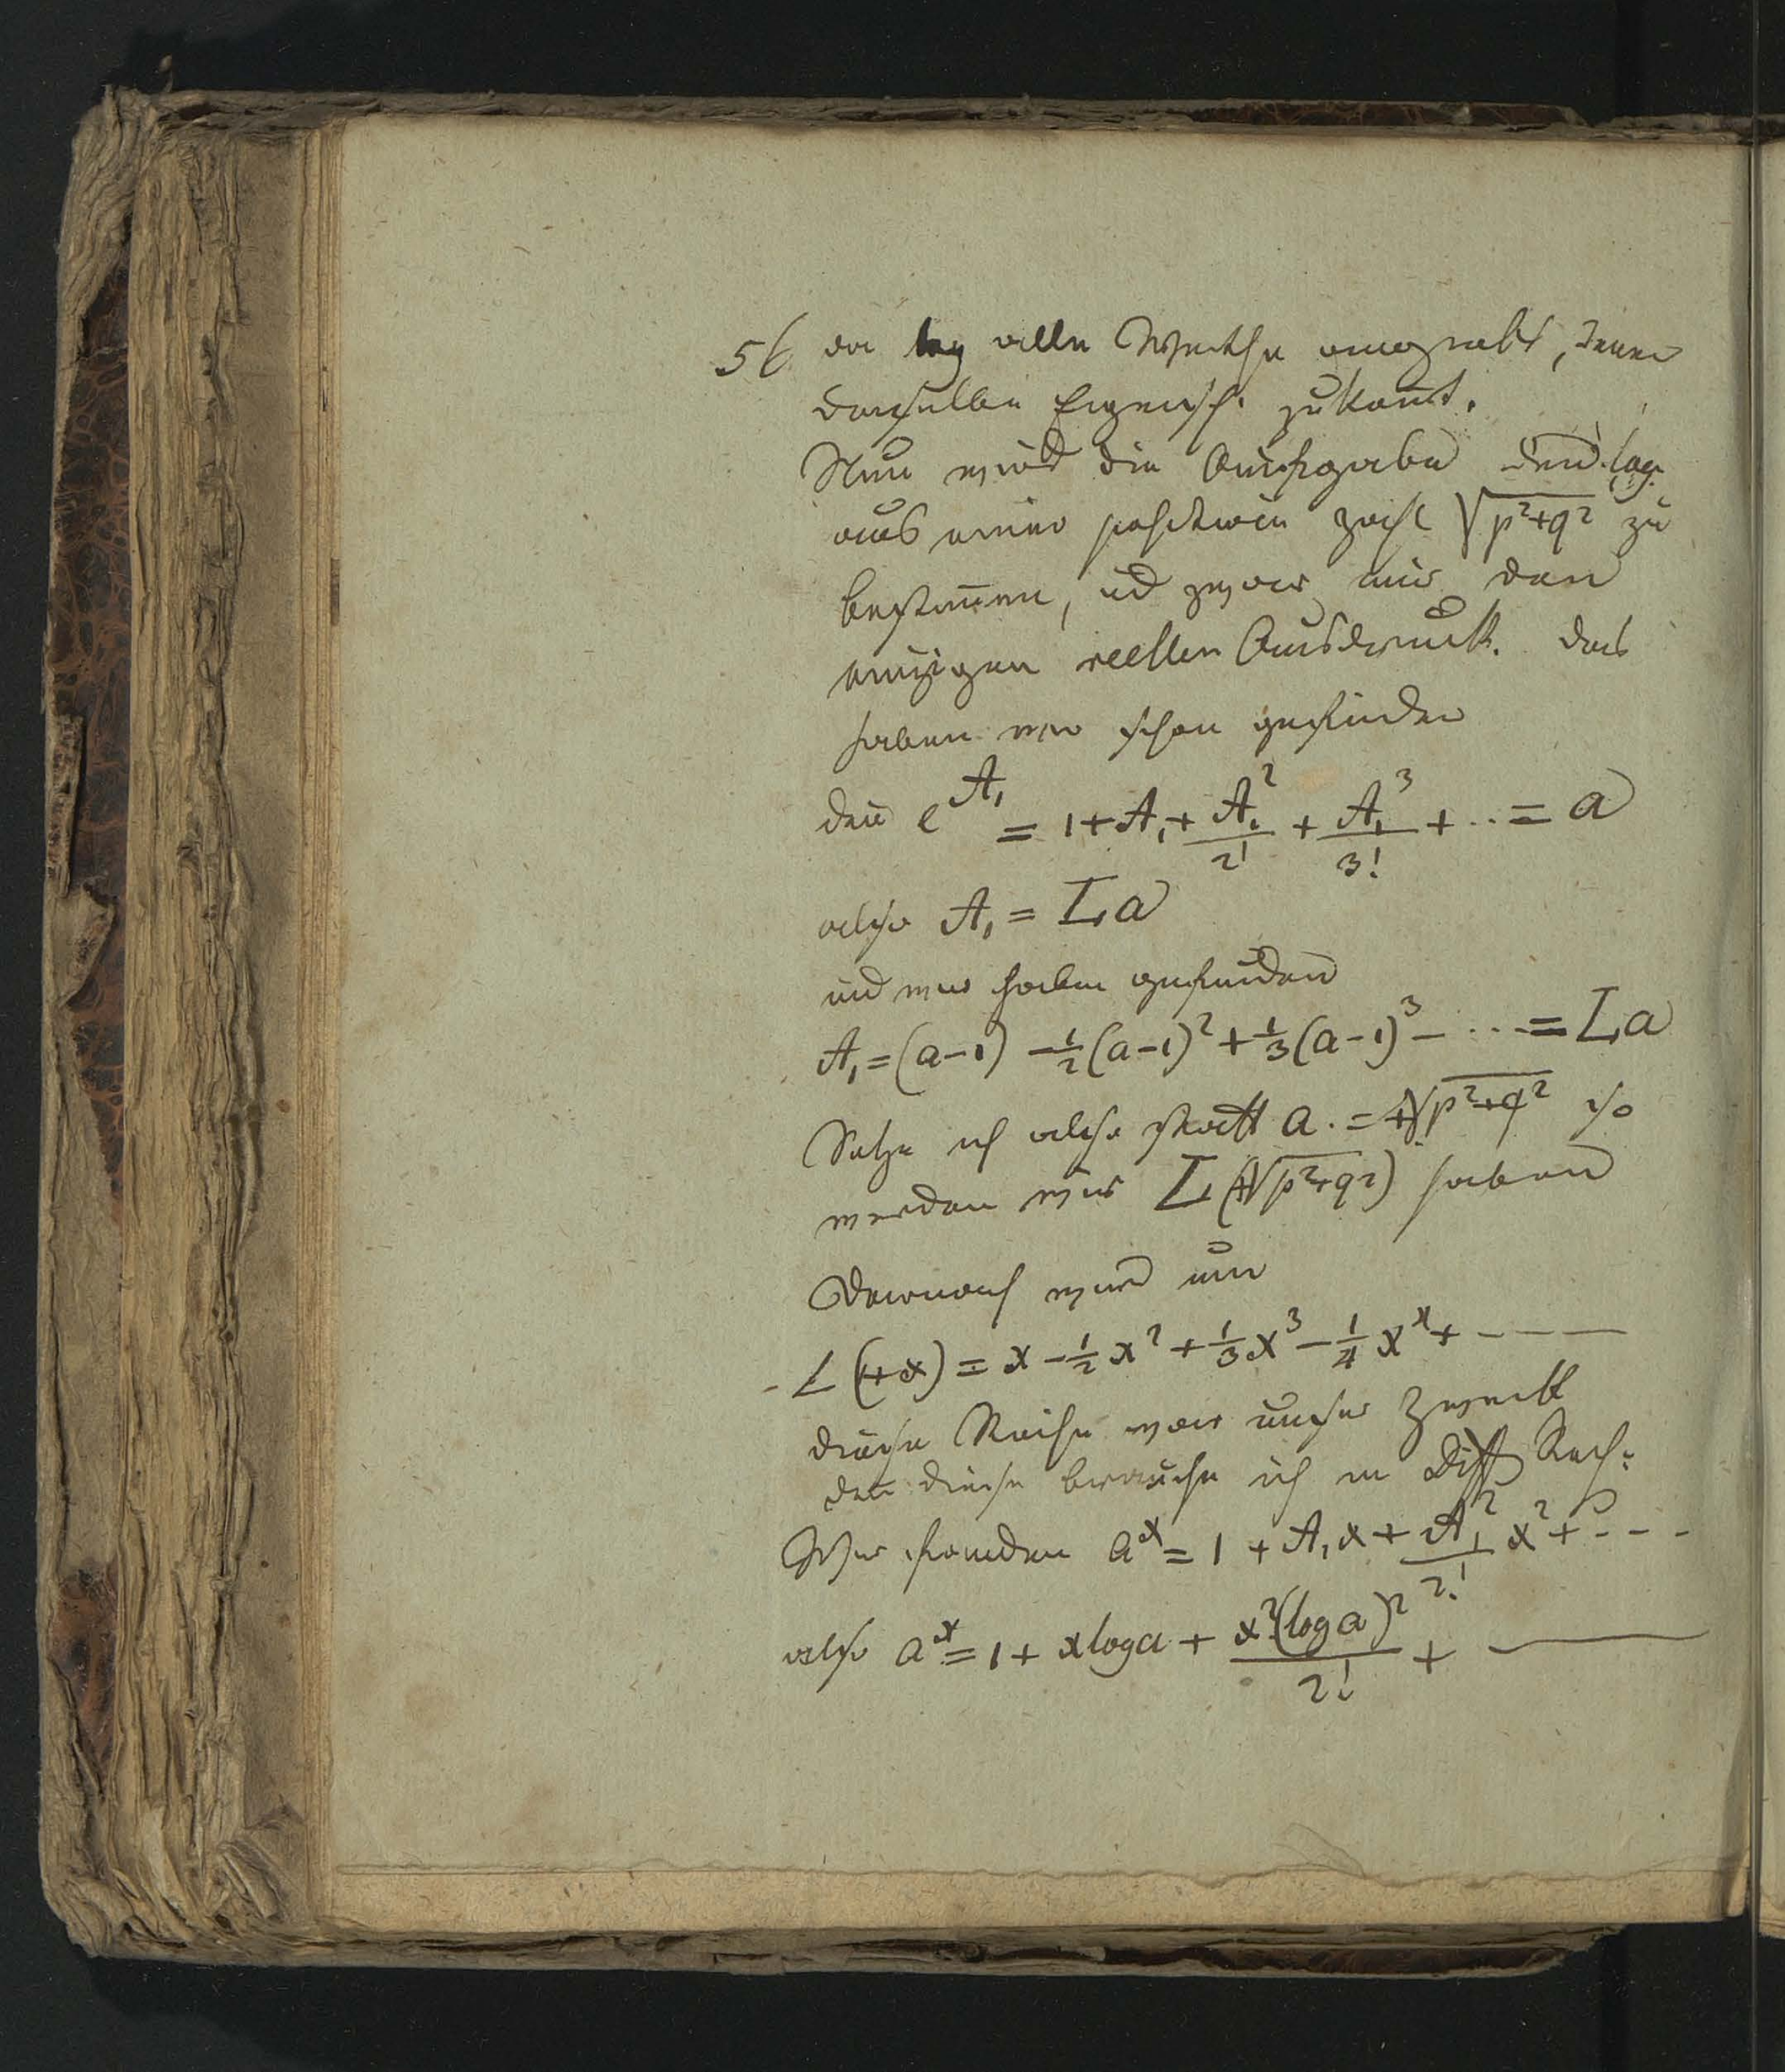 56 da log alle Werthe angiebt, denen
derselben Eigensch. zukomt.
Nun wird die Aufgabe den log.
aus einer positiven Zahl √p²+q² zu
bestimen, ud zwar nur den
einzigen reellen Ausdruck. das
haben wir schon gefunden
den e^A₁ = 1+A₁+A₁²/2! + A₁³/3! + .. = a
also A₁ = La
ud wir haben gefunden
A₁ = (a-1) - ½(a-1)² + ⅓(a-1)³ - ... = La
Setze ich also statt a. = +√p²+q² so
werden wir L(+√p²+q²) haben
Darnach wird nun
L(1+x) = x - ½x² + ⅓x³ - ¼x⁴ + - - -
diese Reihe war unser Zweck
den diese brauche ich in Diff Rech:
Wir fanden aˣ = 1 + A₁x + A₁²/2! x² + - - -
also aˣ = 1 + x log a + x²(log a)²/2! + —